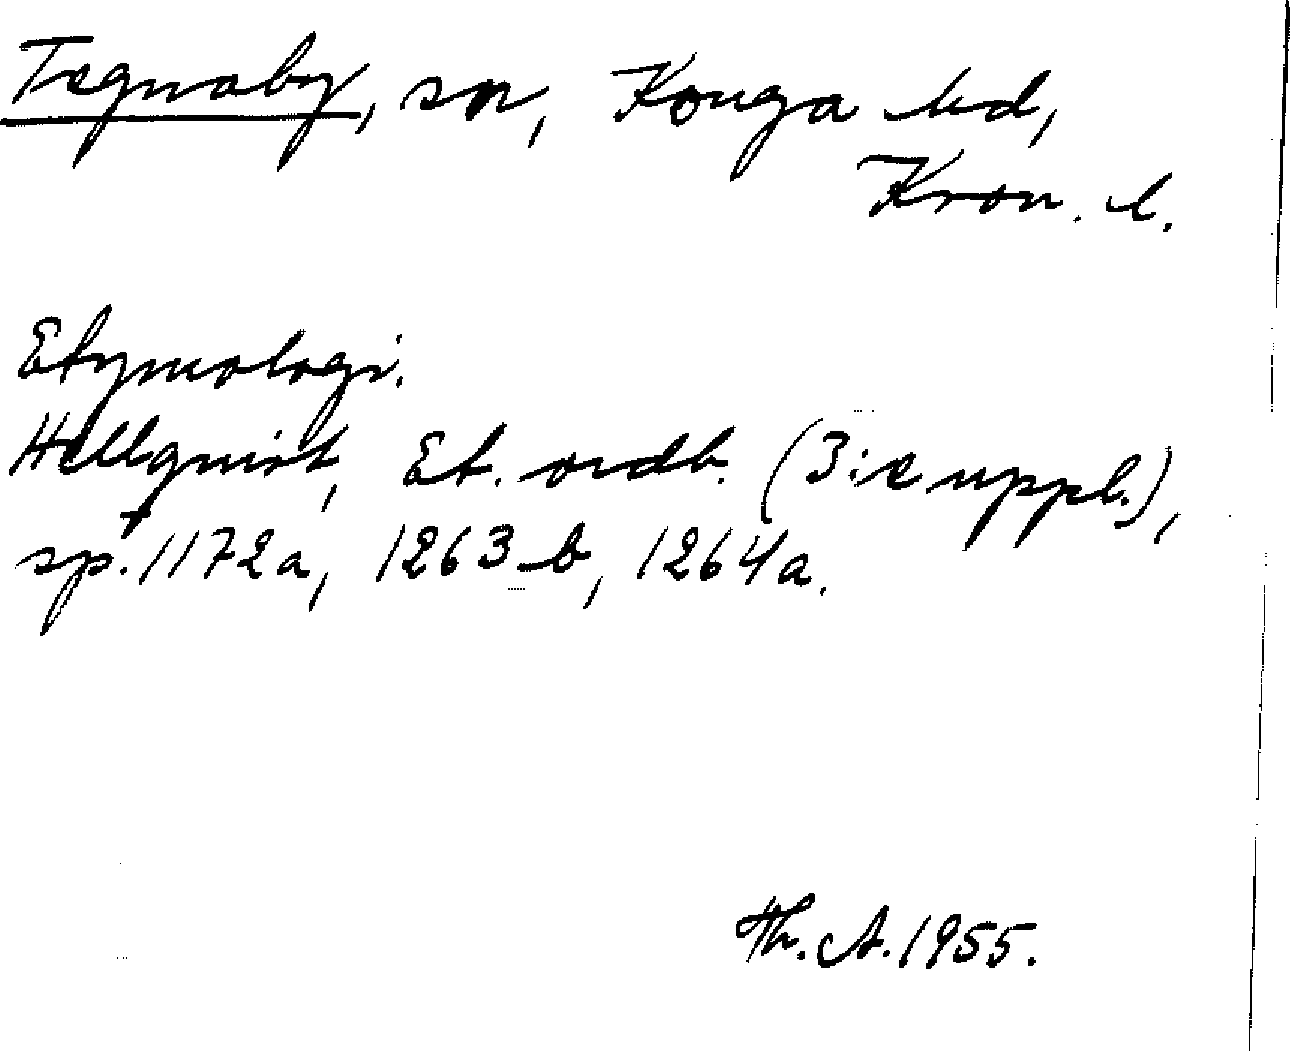 Tegnaby, sn, Konga hd,
Kron. l.
Etymologi.
Hellquist, Et. ordb. (3:e uppl.),
sp. 1172a, 1263 b, 1264a.
Th. A. 1955.